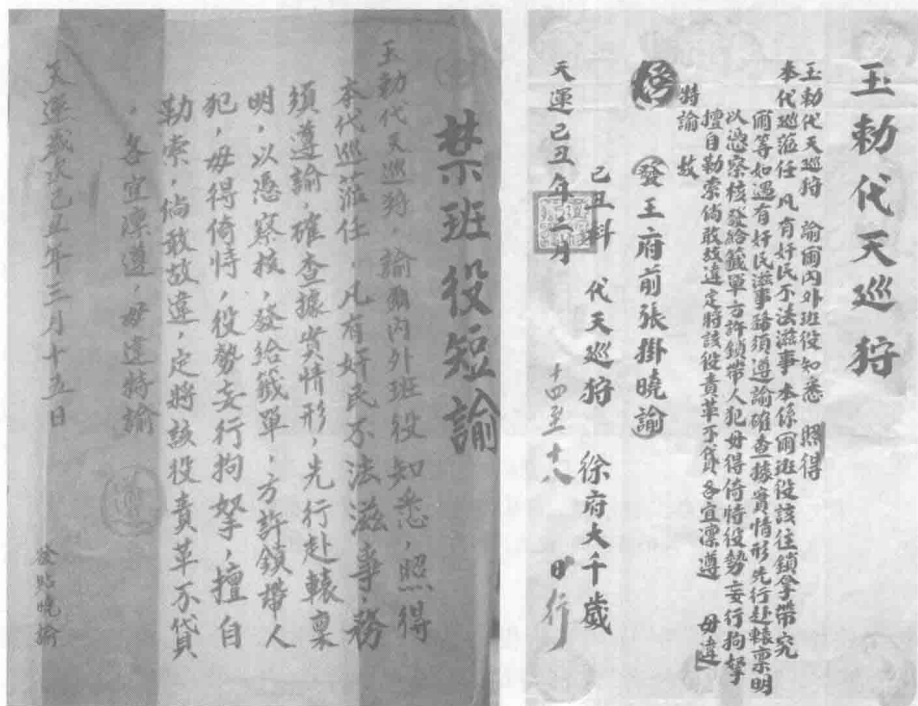 玉勅代天巡狩
玉勅代天巡狩 諭爾內外班役知悉 照得
本代巡蒞任 凡有奸民不法滋事 本係爾班役該往鎖拿帶究
爾等如遇有奸民滋事務須遵諭確查據實情形先行赴轅稟明
以憑察核發給籤單方許鎖帶人犯毋得倚恃役勢妄行拘拏
擅自勒索倘敢故違定將該役責革不貸各宜凜遵 毋違
特諭
發 王府前張掛曉諭
己丑科 代天巡狩 徐府大千歲
天運己丑年二月 十四至十八 日行
禁班役短諭
玉勅代天巡狩，諭爾內外班役知悉，照得
本代巡蒞任，凡有奸民不法滋事，務
須遵諭，確查據實情形，先行赴轅稟
明，以憑察核，發給籤單，方許鎖帶人
犯，毋得倚恃，役勢妄行拘拏，擅自
勒索，倘敢故違，定將該役責革不貸
，各宜凜遵，毋違特諭
天運歲次己丑年三月十五日
發貼曉諭